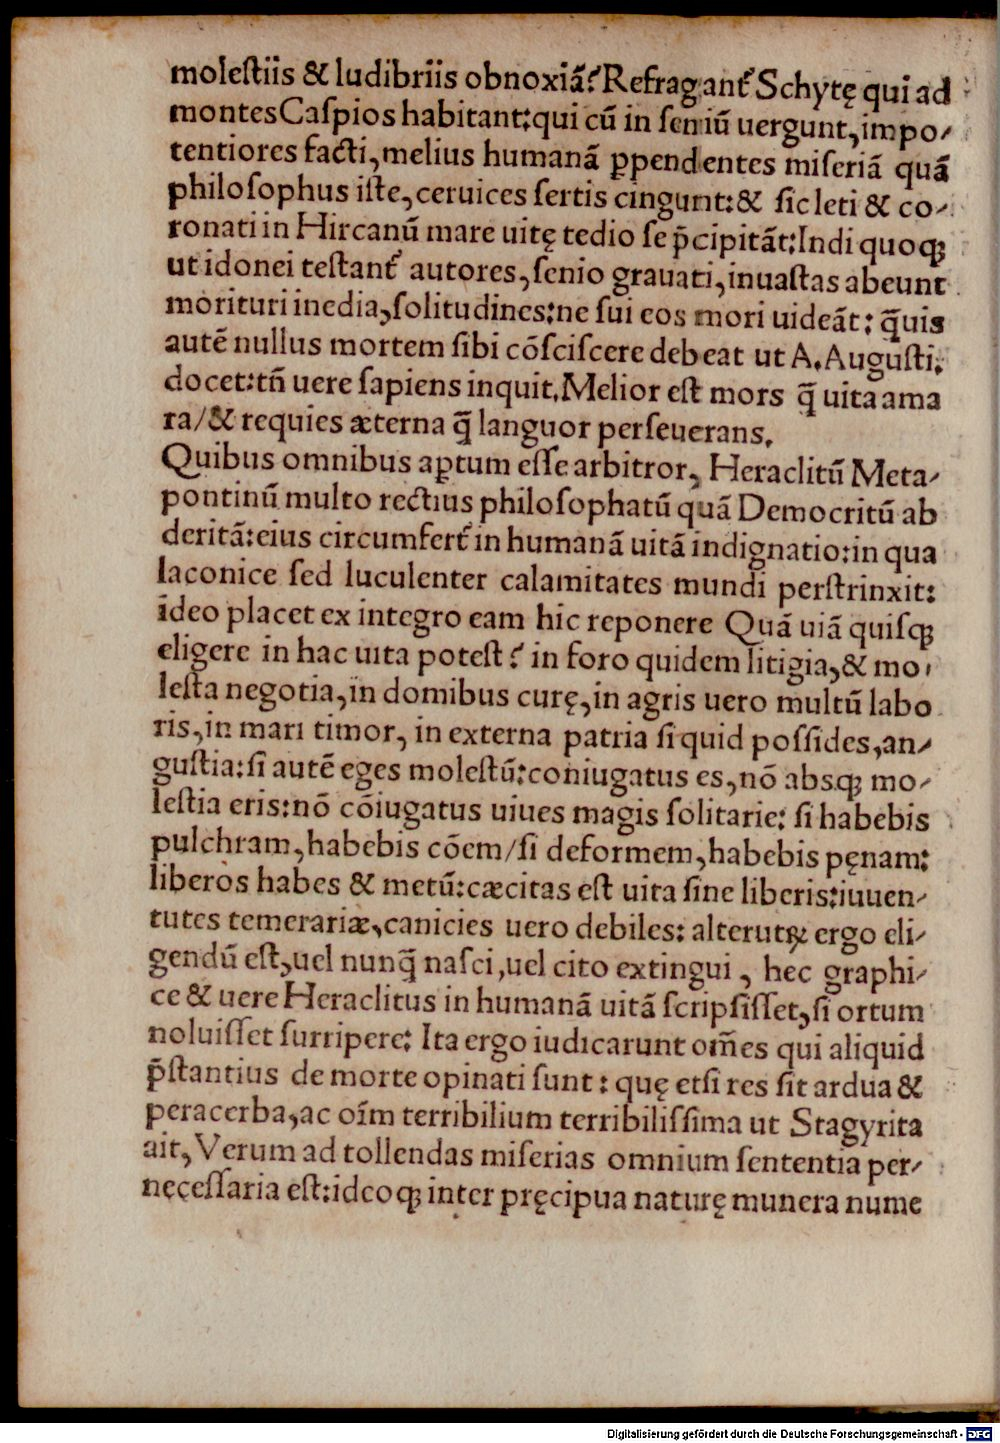 moleſtiis & ludibriis obnoxiã? Refragant᷑ Schytę qui ad
montes Caſpios habitant: qui cũ in ſeniũ uergunt, impo-
tentiores facti, melius humanã ꝑpendentes miſeriã quã
philoſophus iſte, ceruices ſertis cingunt: & ſic leti & co-
ronati in Hircanũ mare uitę tedio ſe p̃cipitãt: Indi quoqꝫ
ut idonei teſtant᷑ autores, ſenio grauati, in uaſtas abeunt
morituri inedia, ſolitudines: ne ſui eos mori uideãt: q̃uis
autẽ nullus mortem ſibi cõſciſcere debeat ut A. Auguſti.
docet: tñ uere ſapiens inquit. Melior eſt mors q̃ uita ama
ra/ & requies æterna q̃ languor perſeuerans.
Quibus omnibus aptum eſſe arbitror, Heraclitũ Meta-
pontinũ multo rectius philoſophatũ quã Democritũ ab
deritã: eius circumfert᷑ in humanã uitã indignatio: in qua
laconice ſed luculenter calamitates mundi perſtrinxit:
ideo placet ex integro eam hic reponere Quã uiã quiſqꝫ
eligere in hac uita poteſt? in foro quidem litigia, & mo-
leſta negotia, in domibus curę, in agris uero multũ labo
ris, in mari timor, in externa patria ſi quid poſſides, an-
guſtia: ſi autẽ eges moleſtũ: coniugatus es, nõ absqꝫ mo-
leſtia eris: nõ cõiugatus uiues magis ſolitarie: ſi habebis
pulchram, habebis cõem/ ſi deformem, habebis pęnam:
liberos habes & metũ: cæcitas eſt uita ſine liberis: iuuen-
tutes temerariæ, canicies uero debiles: alterutꝝ ergo eli-
gendũ eſt, uel nunq̃ naſci, uel cito extingui, hec graphi-
ce & uere Heraclitus in humanã uitã ſcripſiſſet, ſi ortum
noluiſſet ſurripere: Ita ergo iudicarunt om̃es qui aliquid
p̃ſtantius de morte opinati ſunt: quę etſi res ſit ardua &
peracerba, ac oĩm terribilium terribiliſſima ut Stagyrita
ait, Verum ad tollendas miſerias omnium ſententia per-
nęceſſaria eſt: ideoqꝫ inter pręcipua naturę munera nume
Digitalisierung gefördert durch die Deutsche Forschungsgemeinschaft - DFG